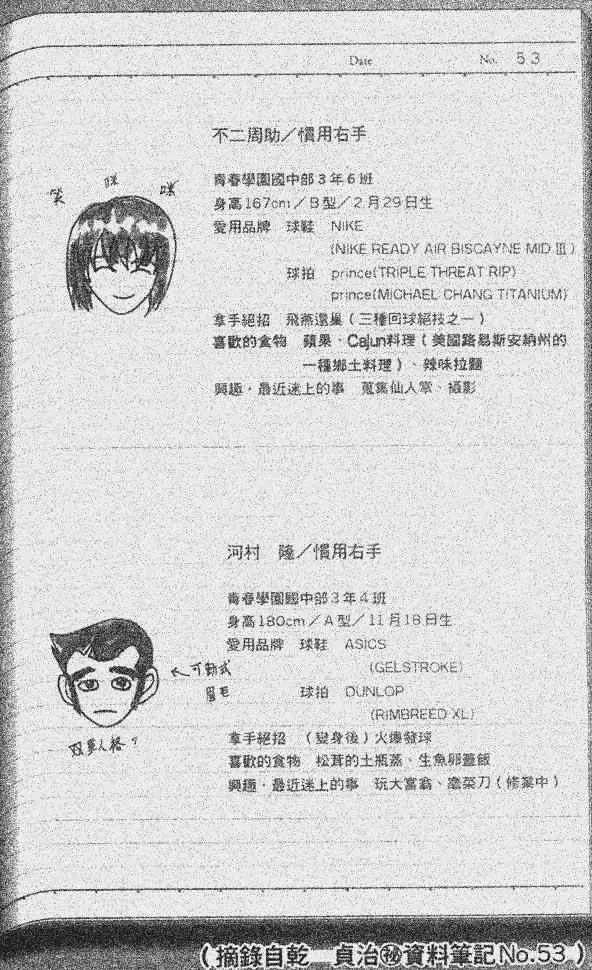 Date No. 53
不二周助／慣用右手
笑 咪 咪
青春學園國中部3年6班
身高167cm／B型／2月29日生
愛用品牌 球鞋 NIKE
(NIKE READY AIR BISCAYNE MID Ⅲ)
球拍 prince(TRIPLE THREAT RIP)
prince(MICHAEL CHANG TITANIUM)
拿手絕招 飛燕還巢（三種回球絕技之一）
喜歡的食物 蘋果、Cajun料理（美國路易斯安納州的
一種鄉土料理）、辣味拉麵
興趣・最近迷上的事 蒐集仙人掌、攝影
河村 隆／慣用右手
青春學園國中部3年4班
身高180cm／A型／11月18日生
愛用品牌 球鞋 ASICS
(GELSTROKE)
球拍 DUNLOP
(RIMBREED XL)
可動式
眉毛
雙重人格？
拿手絕招 （變身後）火爆發球
喜歡的食物 松茸的土瓶蒸、生魚卵蓋飯
興趣・最近迷上的事 玩大富翁、磨菜刀（修業中）
（摘錄自乾 貞治㊙資料筆記No.53）